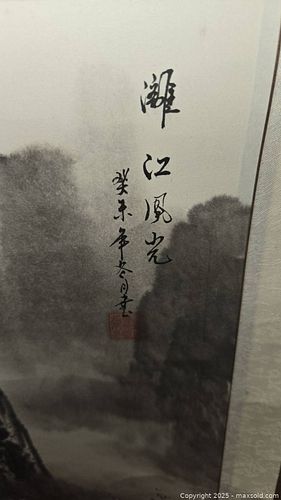 灕江風光
癸未年冬月畫
Copyright © 2025 - maxsold.com